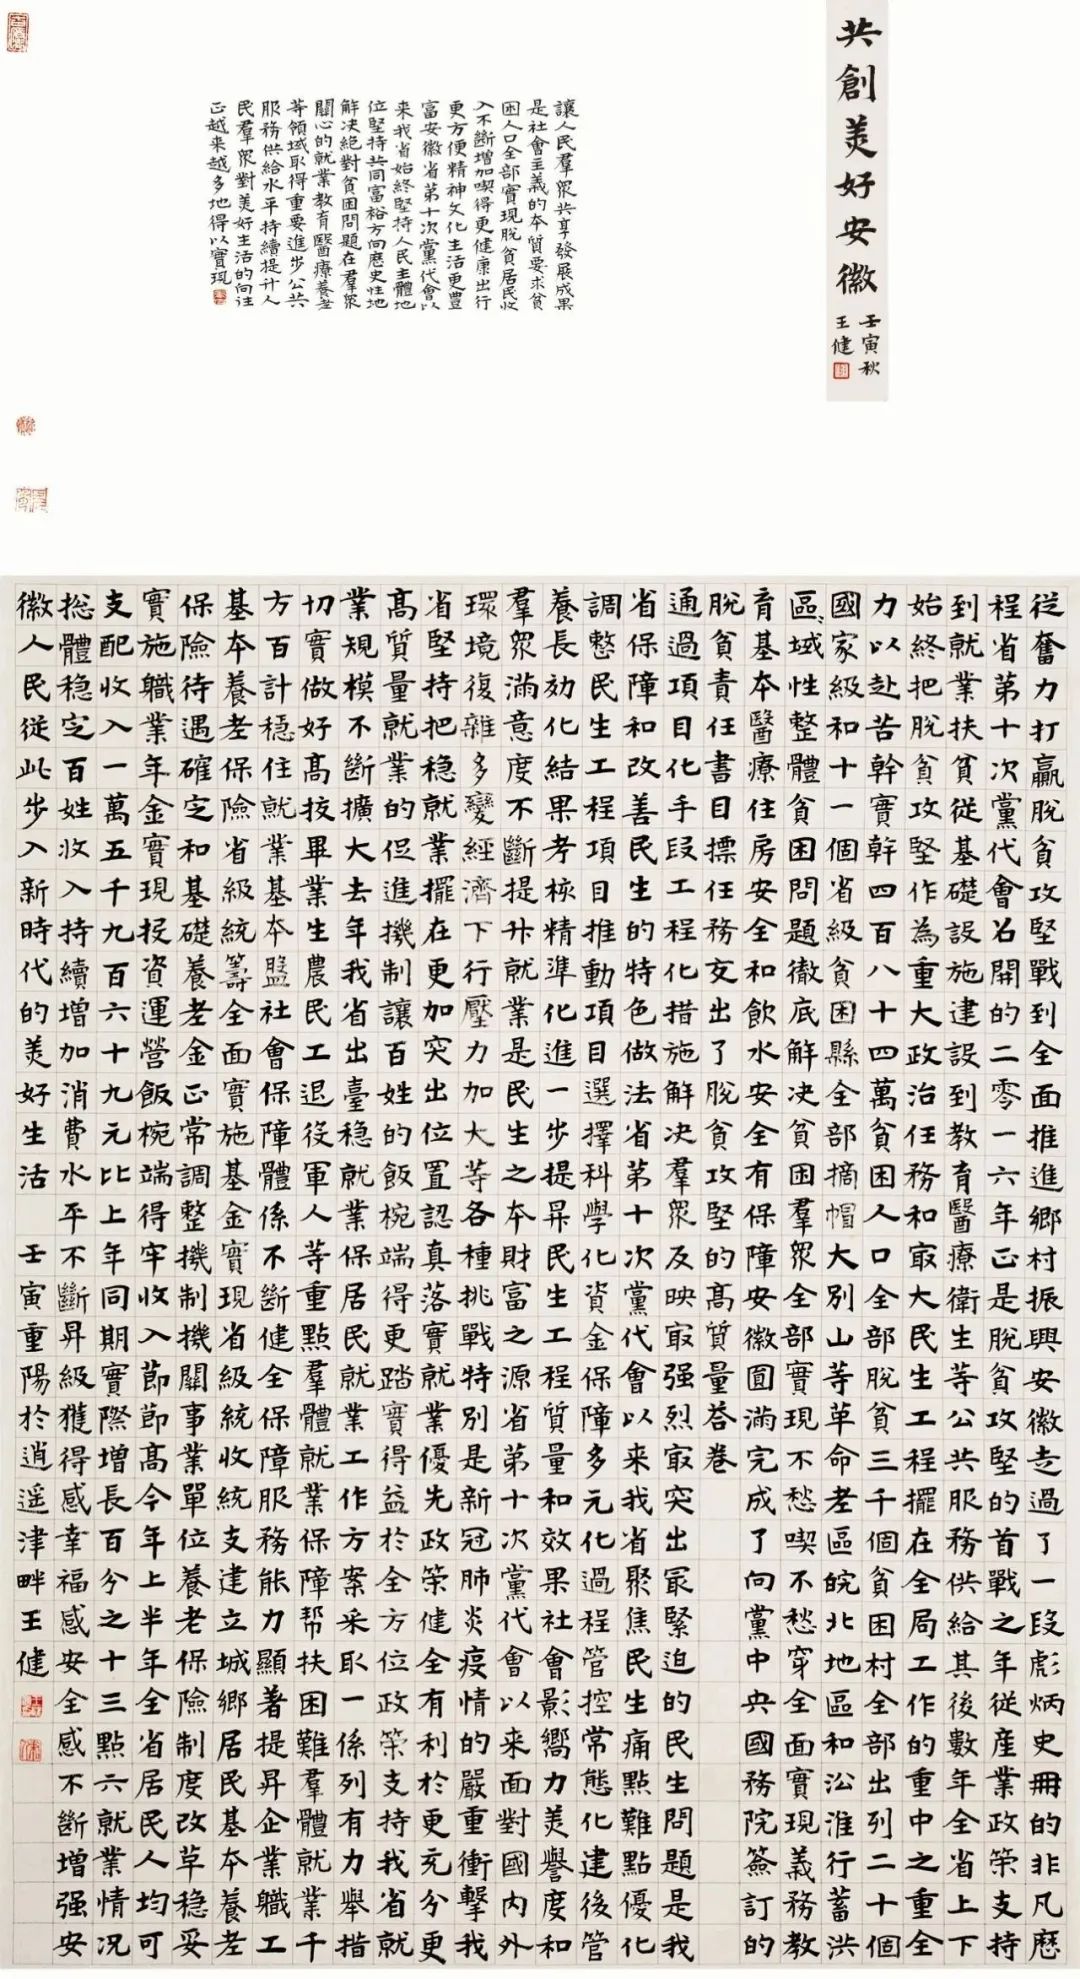 共創美好安徽
壬寅秋
王健
讓人民羣眾共享發展成果
是社會主義的本質要求貧
困人口全部實現脫貧居民收
入不斷增加喫得更健康出行
更方便精神文化生活更豐
富安徽省第十次黨代會以
来我省始終堅持人民主體地
位堅持共同富裕方向歷史性地
解決絕對貧困問題在羣眾
關心的就業教育醫療養老
等領域取得重要進步公共
服務供給水平持續提升人
民羣眾對美好生活的向往
正越来越多地得以實現
從奮力打贏脫貧攻堅戰到全面推進鄉村振興安徽走過了一段彪炳史冊的非凡歷
程省第十次黨代會召開的二零一六年正是脫貧攻堅的首戰之年從產業政策支持
到就業扶貧從基礎設施建設到教育醫療衛生等公共服務供給其後數年全省上下
始終把脫貧攻堅作為重大政治任務和最大民生工程擺在全局工作的重中之重全
力以赴苦幹實幹四百八十四萬貧困人口全部脫貧三千個貧困村全部出列二十個
國家級和十一個省級貧困縣全部摘帽大別山等革命老區皖北地區和沿淮行蓄洪
區域性整體貧困問題徹底解決貧困羣眾全部實現不愁喫不愁穿全面實現義務教
育基本醫療住房安全和飲水安全有保障安徽圓滿完成了向黨中央國務院簽訂的
脫貧責任書目標任務交出了脫貧攻堅的高質量答卷
通過項目化手段工程化措施解決羣眾反映最强烈最突出最緊迫的民生問題是我
省保障和改善民生的特色做法省第十次黨代會以来我省聚焦民生痛點難點優化
調整民生工程項目推動項目選擇科學化資金保障多元化過程管控常態化建後管
養長効化結果考核精準化進一步提昇民生工程質量和效果社會影嚮力美譽度和
羣眾滿意度不斷提升就業是民生之本財富之源省第十次黨代會以来面對國內外
環境復雜多變經濟下行壓力加大等各種挑戰特別是新冠肺炎疫情的嚴重衝擊我
省堅持把穩就業擺在更加突出位置認真落實就業優先政策健全有利於更充分更
高質量就業的促進機制讓百姓的飯椀端得更踏實得益於全方位政策支持我省就
業規模不斷擴大去年我省出臺穩就業保居民就業工作方案采取一係列有力舉措
切實做好高校畢業生農民工退役軍人等重點羣體就業保障帮扶困難羣體就業千
方百計穩住就業基本盤社會保障體係不斷健全保障服務能力顯著提昇企業職工
基本養老保險省級統籌全面實施基金實現省級統收統支建立城鄉居民基本養老
保險待遇確定和基礎養老金正常調整機制機關事業單位養老保險制度改革穩妥
實施職業年金實現投資運營飯椀端得牢收入節節高今年上半年全省居民人均可
支配收入一萬五千九百六十九元比上年同期實際增長百分之十三點六就業情況
総體穩定百姓收入持續增加消費水平不斷昇級獲得感幸福感安全感不斷增强安
徽人民從此步入新時代的美好生活 壬寅重陽於逍遥津畔王健